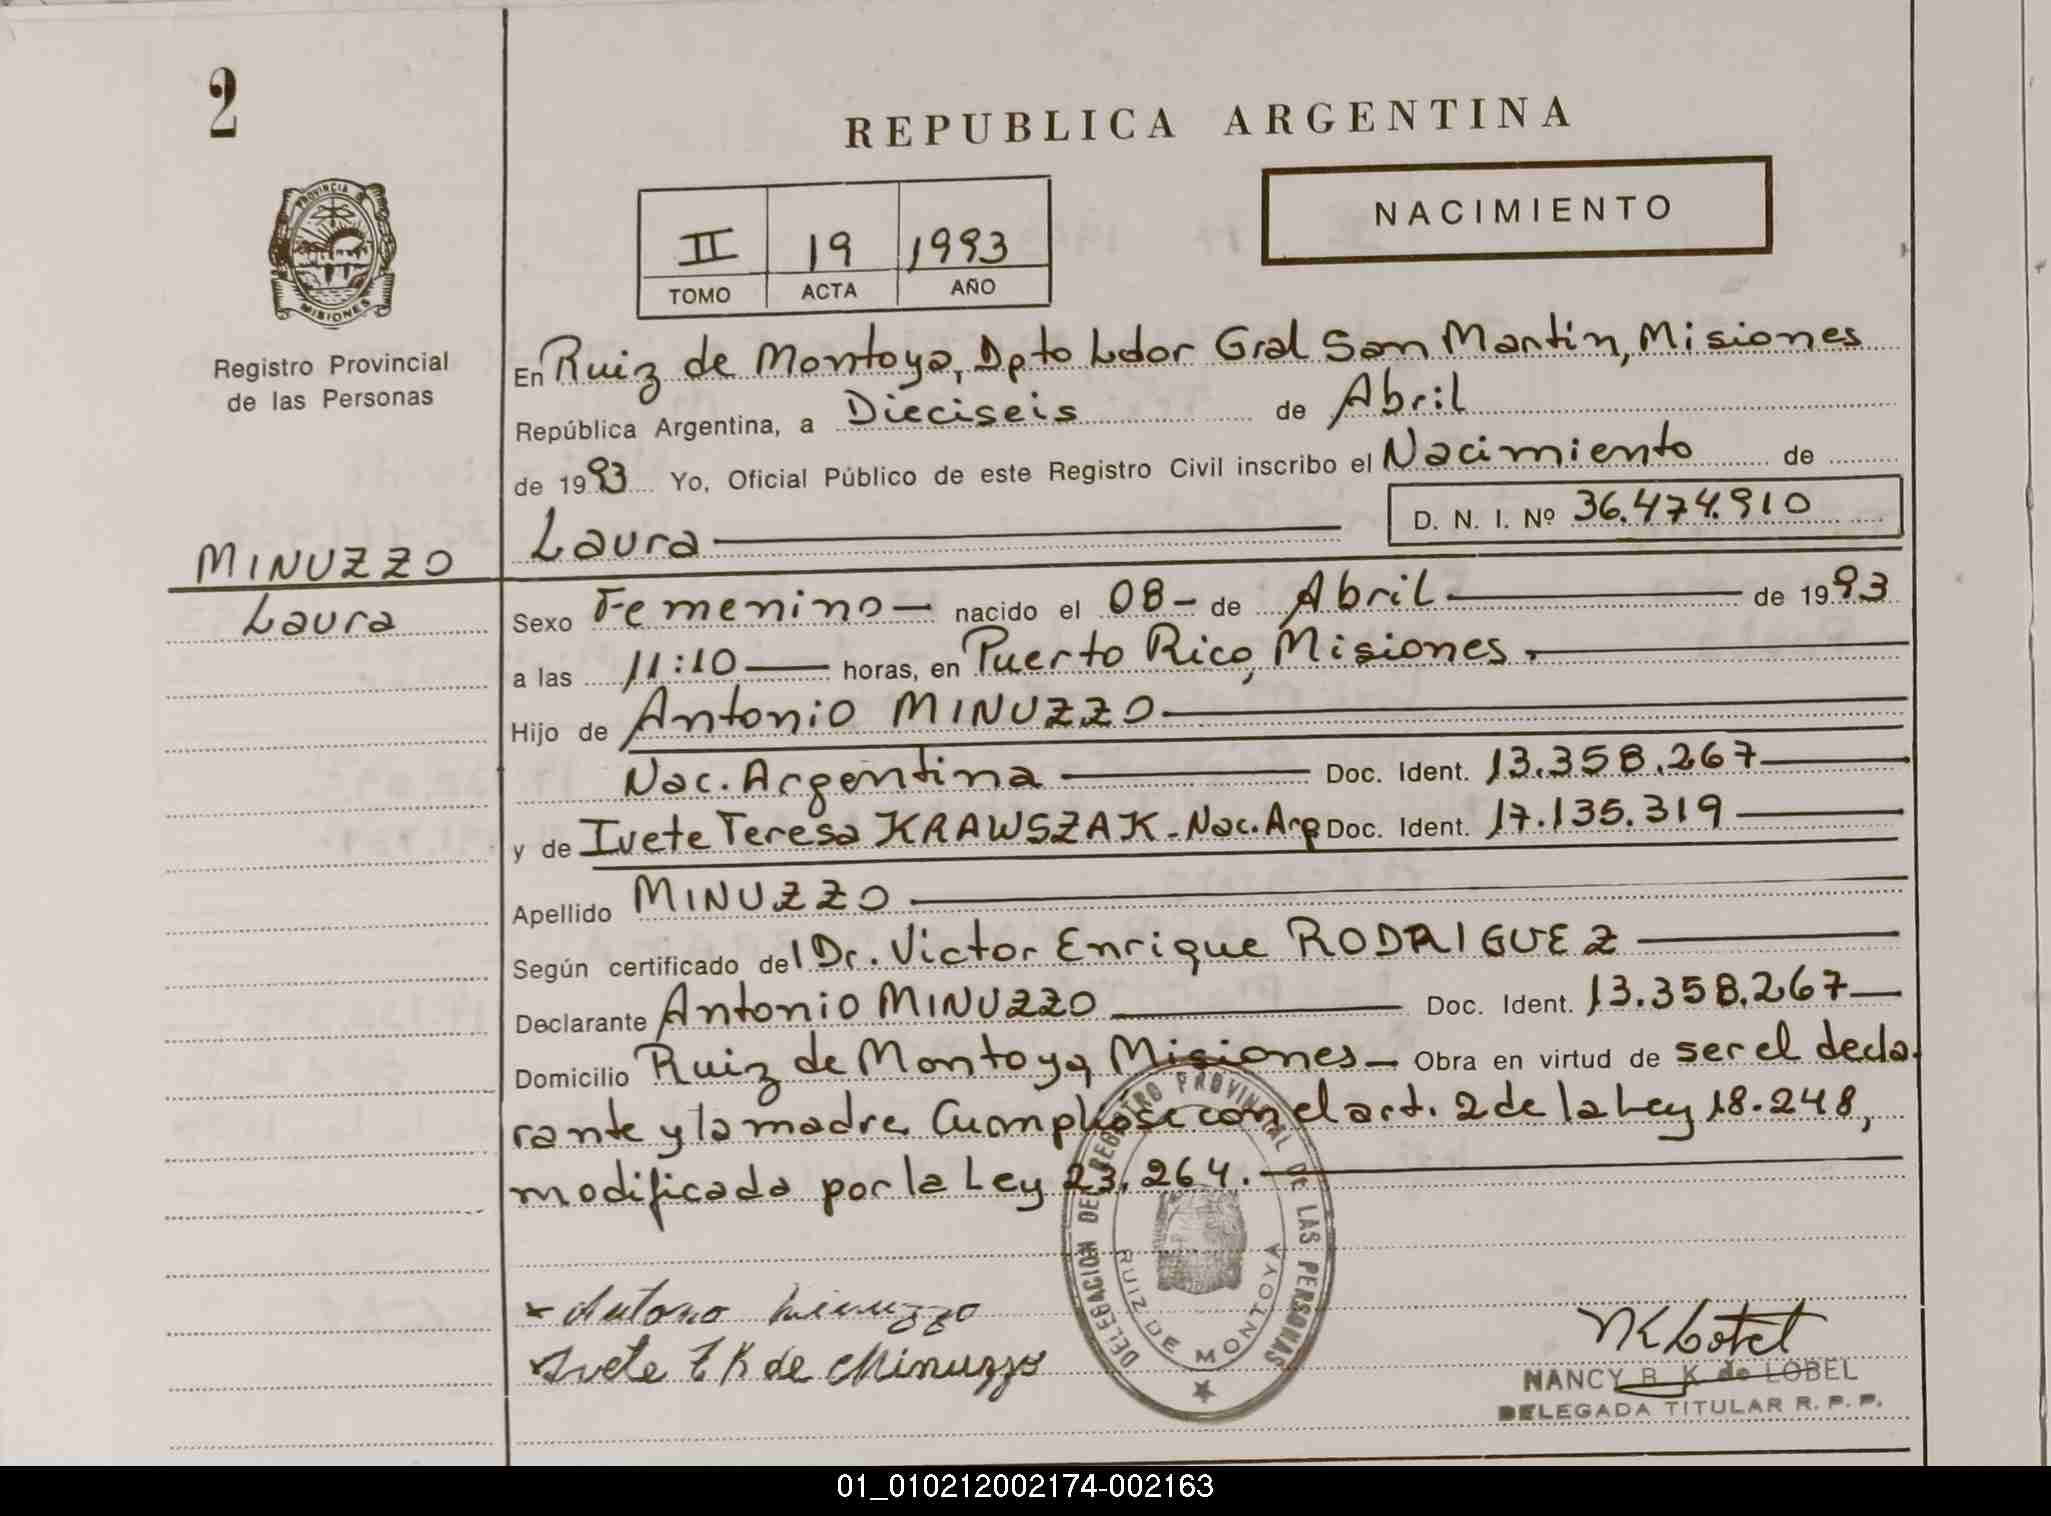 2
REPUBLICA ARGENTINA
NACIMIENTO
II 19 1993
TOMO ACTA AÑO
PROVINCIA DE
MISIONES
Registro Provincial
de las Personas
En Ruiz de Montoya, Dpto Ldor Gral San Martín, Misiones
República Argentina, a Dieciseis de Abril
de 1993 Yo, Oficial Público de este Registro Civil inscribo el Nacimiento de
D. N. I. Nº 36.474.910
Laura
MINUZZO
Laura
Sexo Femenino — nacido el 08 - de Abril de 1993
a las 11:10 horas, en Puerto Rico, Misiones.
Hijo de Antonio MINUZZO
Nac. Argentina Doc. Ident. 13.358.267
y de Ivete Teresa KRAWSZAK - Nac. Arg Doc. Ident. 17.135.319
Apellido MINUZZO
Según certificado del Dr. Victor Enrique RODRIGUEZ
Declarante Antonio MINUZZO Doc. Ident. 13.358.267
Domicilio Ruiz de Montoya, Misiones — Obra en virtud de ser el decla-
rante y la madre. Cumplióse con el art. 2 de la Ley 18.248,
modificada por la Ley 23.264.
DELEGACION DEL REGISTRO PROVINCIAL DE LAS PERSONAS
RUIZ DE MONTOYA
x Antonio Minuzzo
x Ivete T K de Minuzzo
NANCY B. K. de LOBEL
DELEGADA TITULAR R. P. P.
01_010212002174-002163